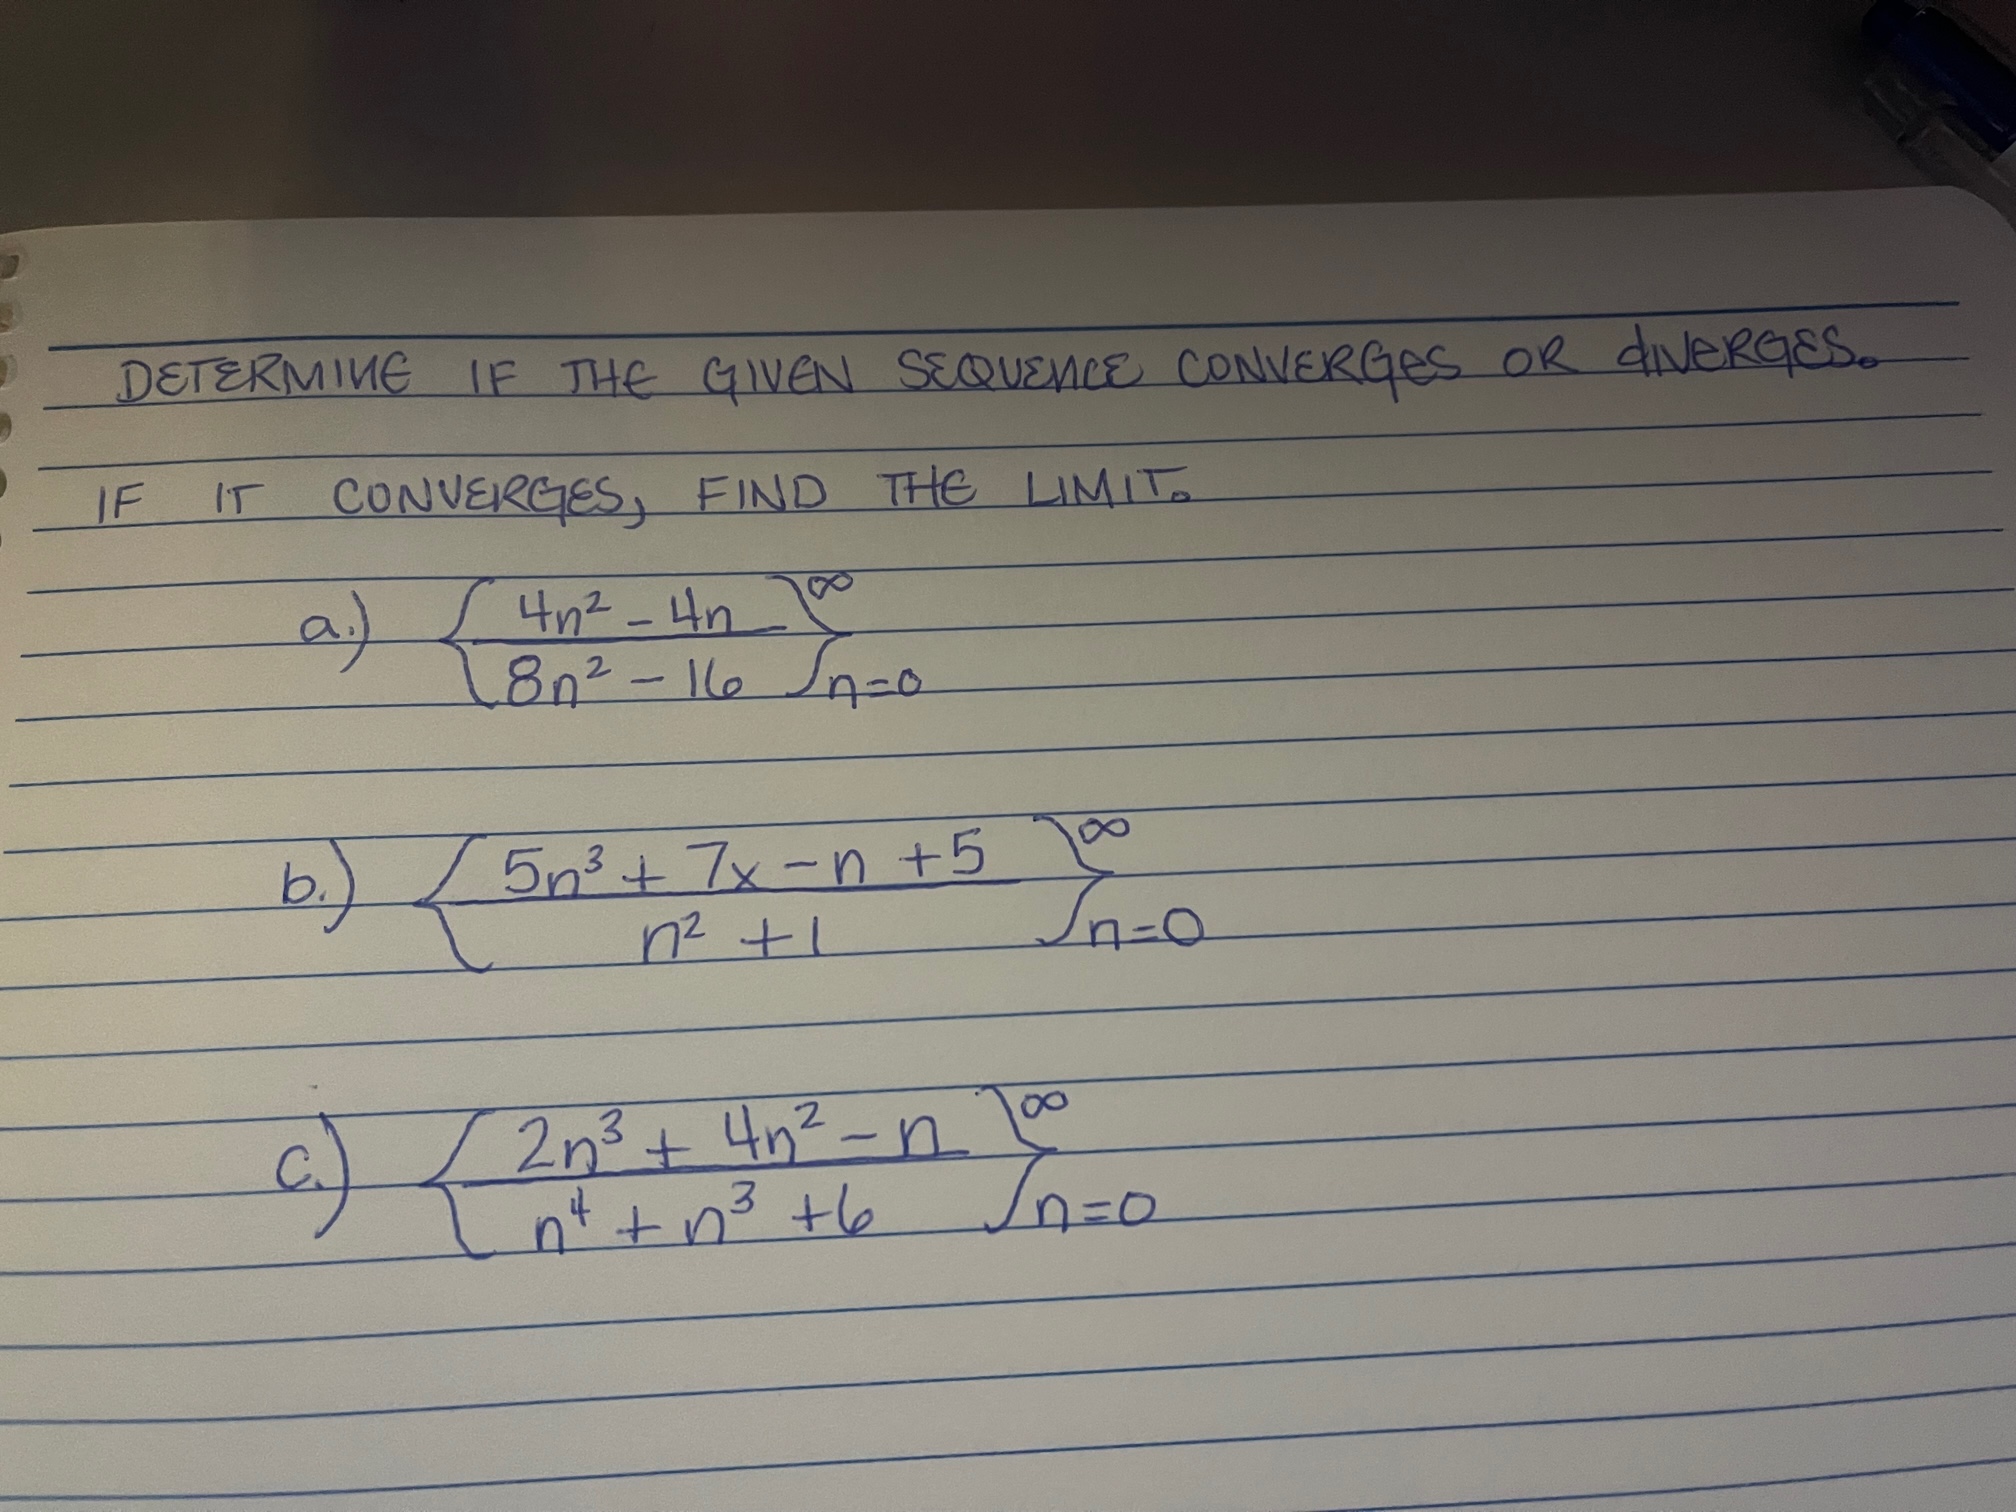 DETERMINE IF THE GIVEN SEQUENCE CONVERGES OR dIVERGES.
IF IT CONVERGES, FIND THE LIMIT.
a.) { (4n² - 4n) / (8n² - 16) }^∞ n=0
b.) { (5n³ + 7x - n + 5) / (n² + 1) }^∞ n=0
c.) { (2n³ + 4n² - n) / (n⁴ + n³ + 6) }^∞ n=0